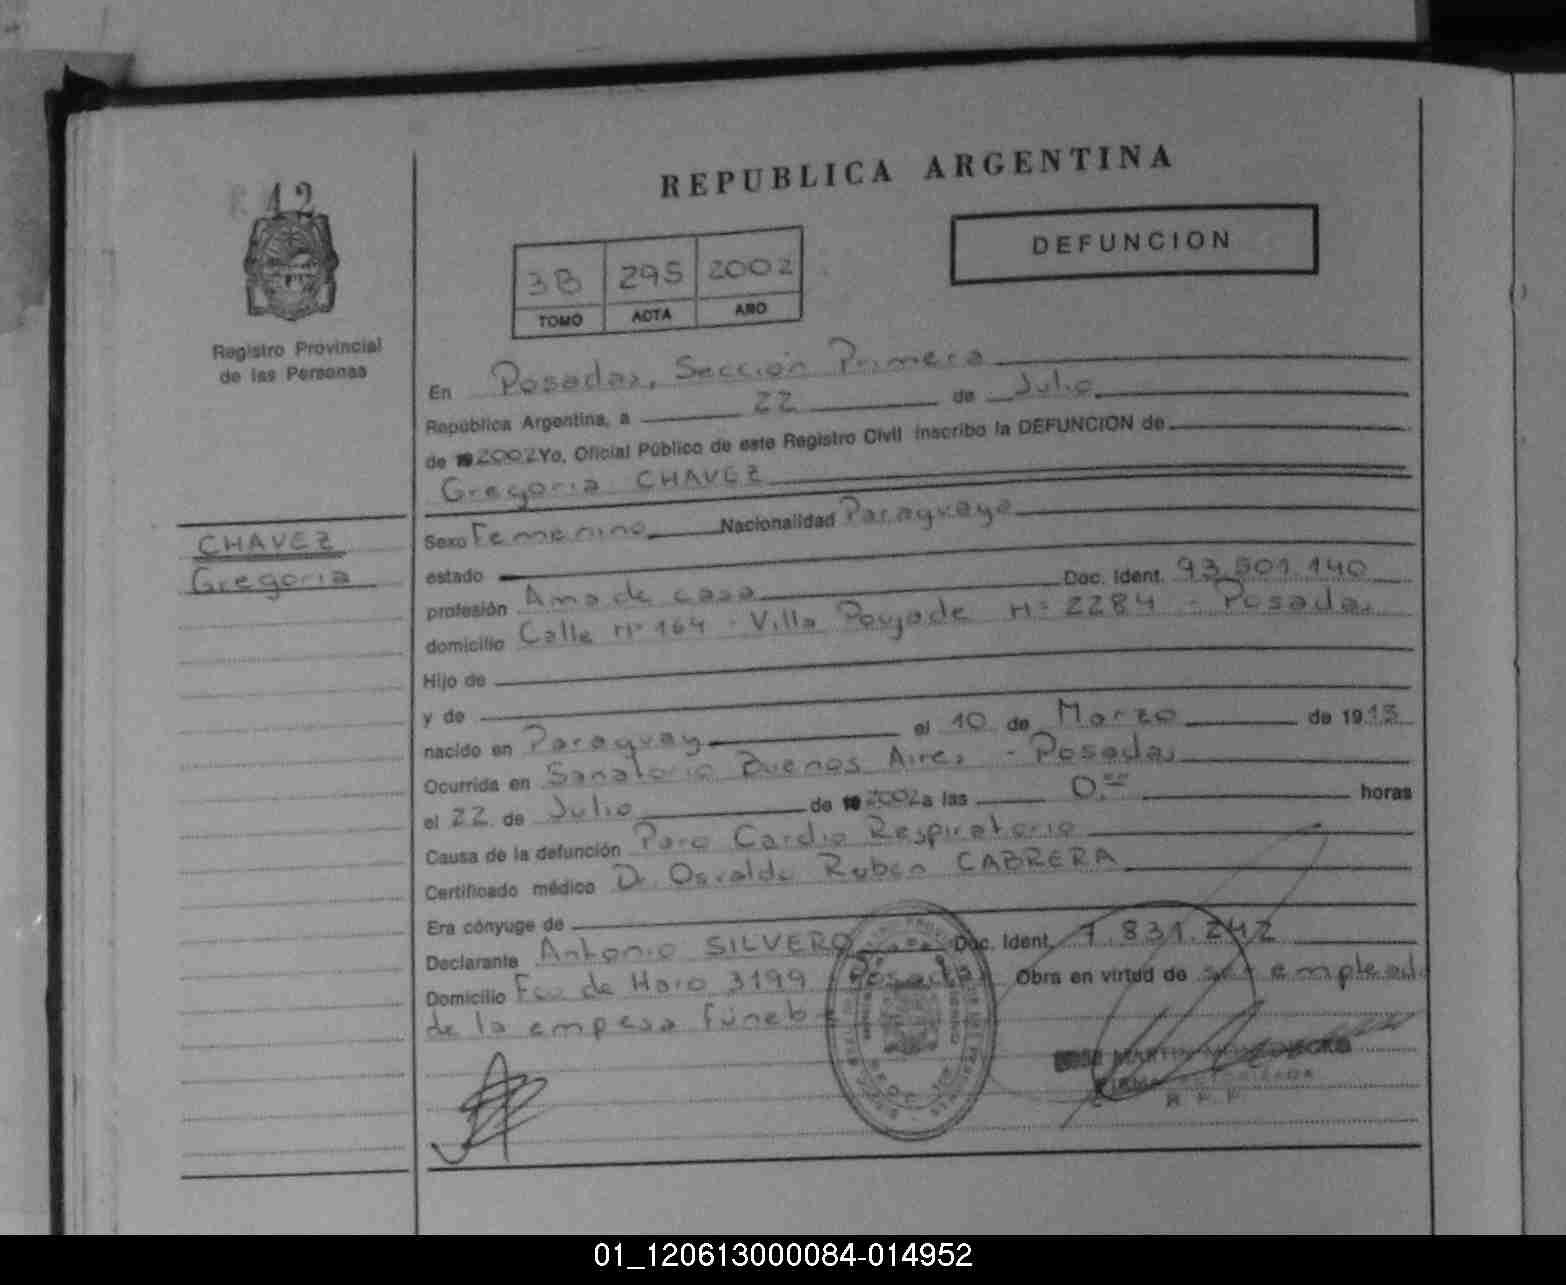 42
Registro Provincial
de las Personas
CHAVEZ
Gregoria
REPUBLICA ARGENTINA
DEFUNCION
3B 295 2002
TOMO ACTA AÑO
En Posadas, Sección Primera
República Argentina, a 22 de Julio
de 2002 Yo, Oficial Público de este Registro Civil inscribo la DEFUNCION de
Gregoria CHAVEZ
Sexo Femenino Nacionalidad Paraguaya
estado
profesión Ama de casa Doc. Ident. 93.501.140
domicilio Calle Nº 164 - Villa Poujade Nº 2284 - Posadas
Hijo de
y de
nacido en Paraguay el 10 de Marzo de 1913
Ocurrida en Sanatorio Buenos Aires - Posadas
el 22 de Julio de 2002 a las 0.00 horas
Causa de la defunción Paro Cardio Respiratorio
Certificado médico Dr. Osvaldo Ruben CABRERA
Era cónyuge de
Declarante Antonio SILVERO Doc. Ident. 7.831.242
Domicilio Fco de Haro 3199 Posadas Obra en virtud de ser emplead
de la empesa fúneb
01_120613000084-014952